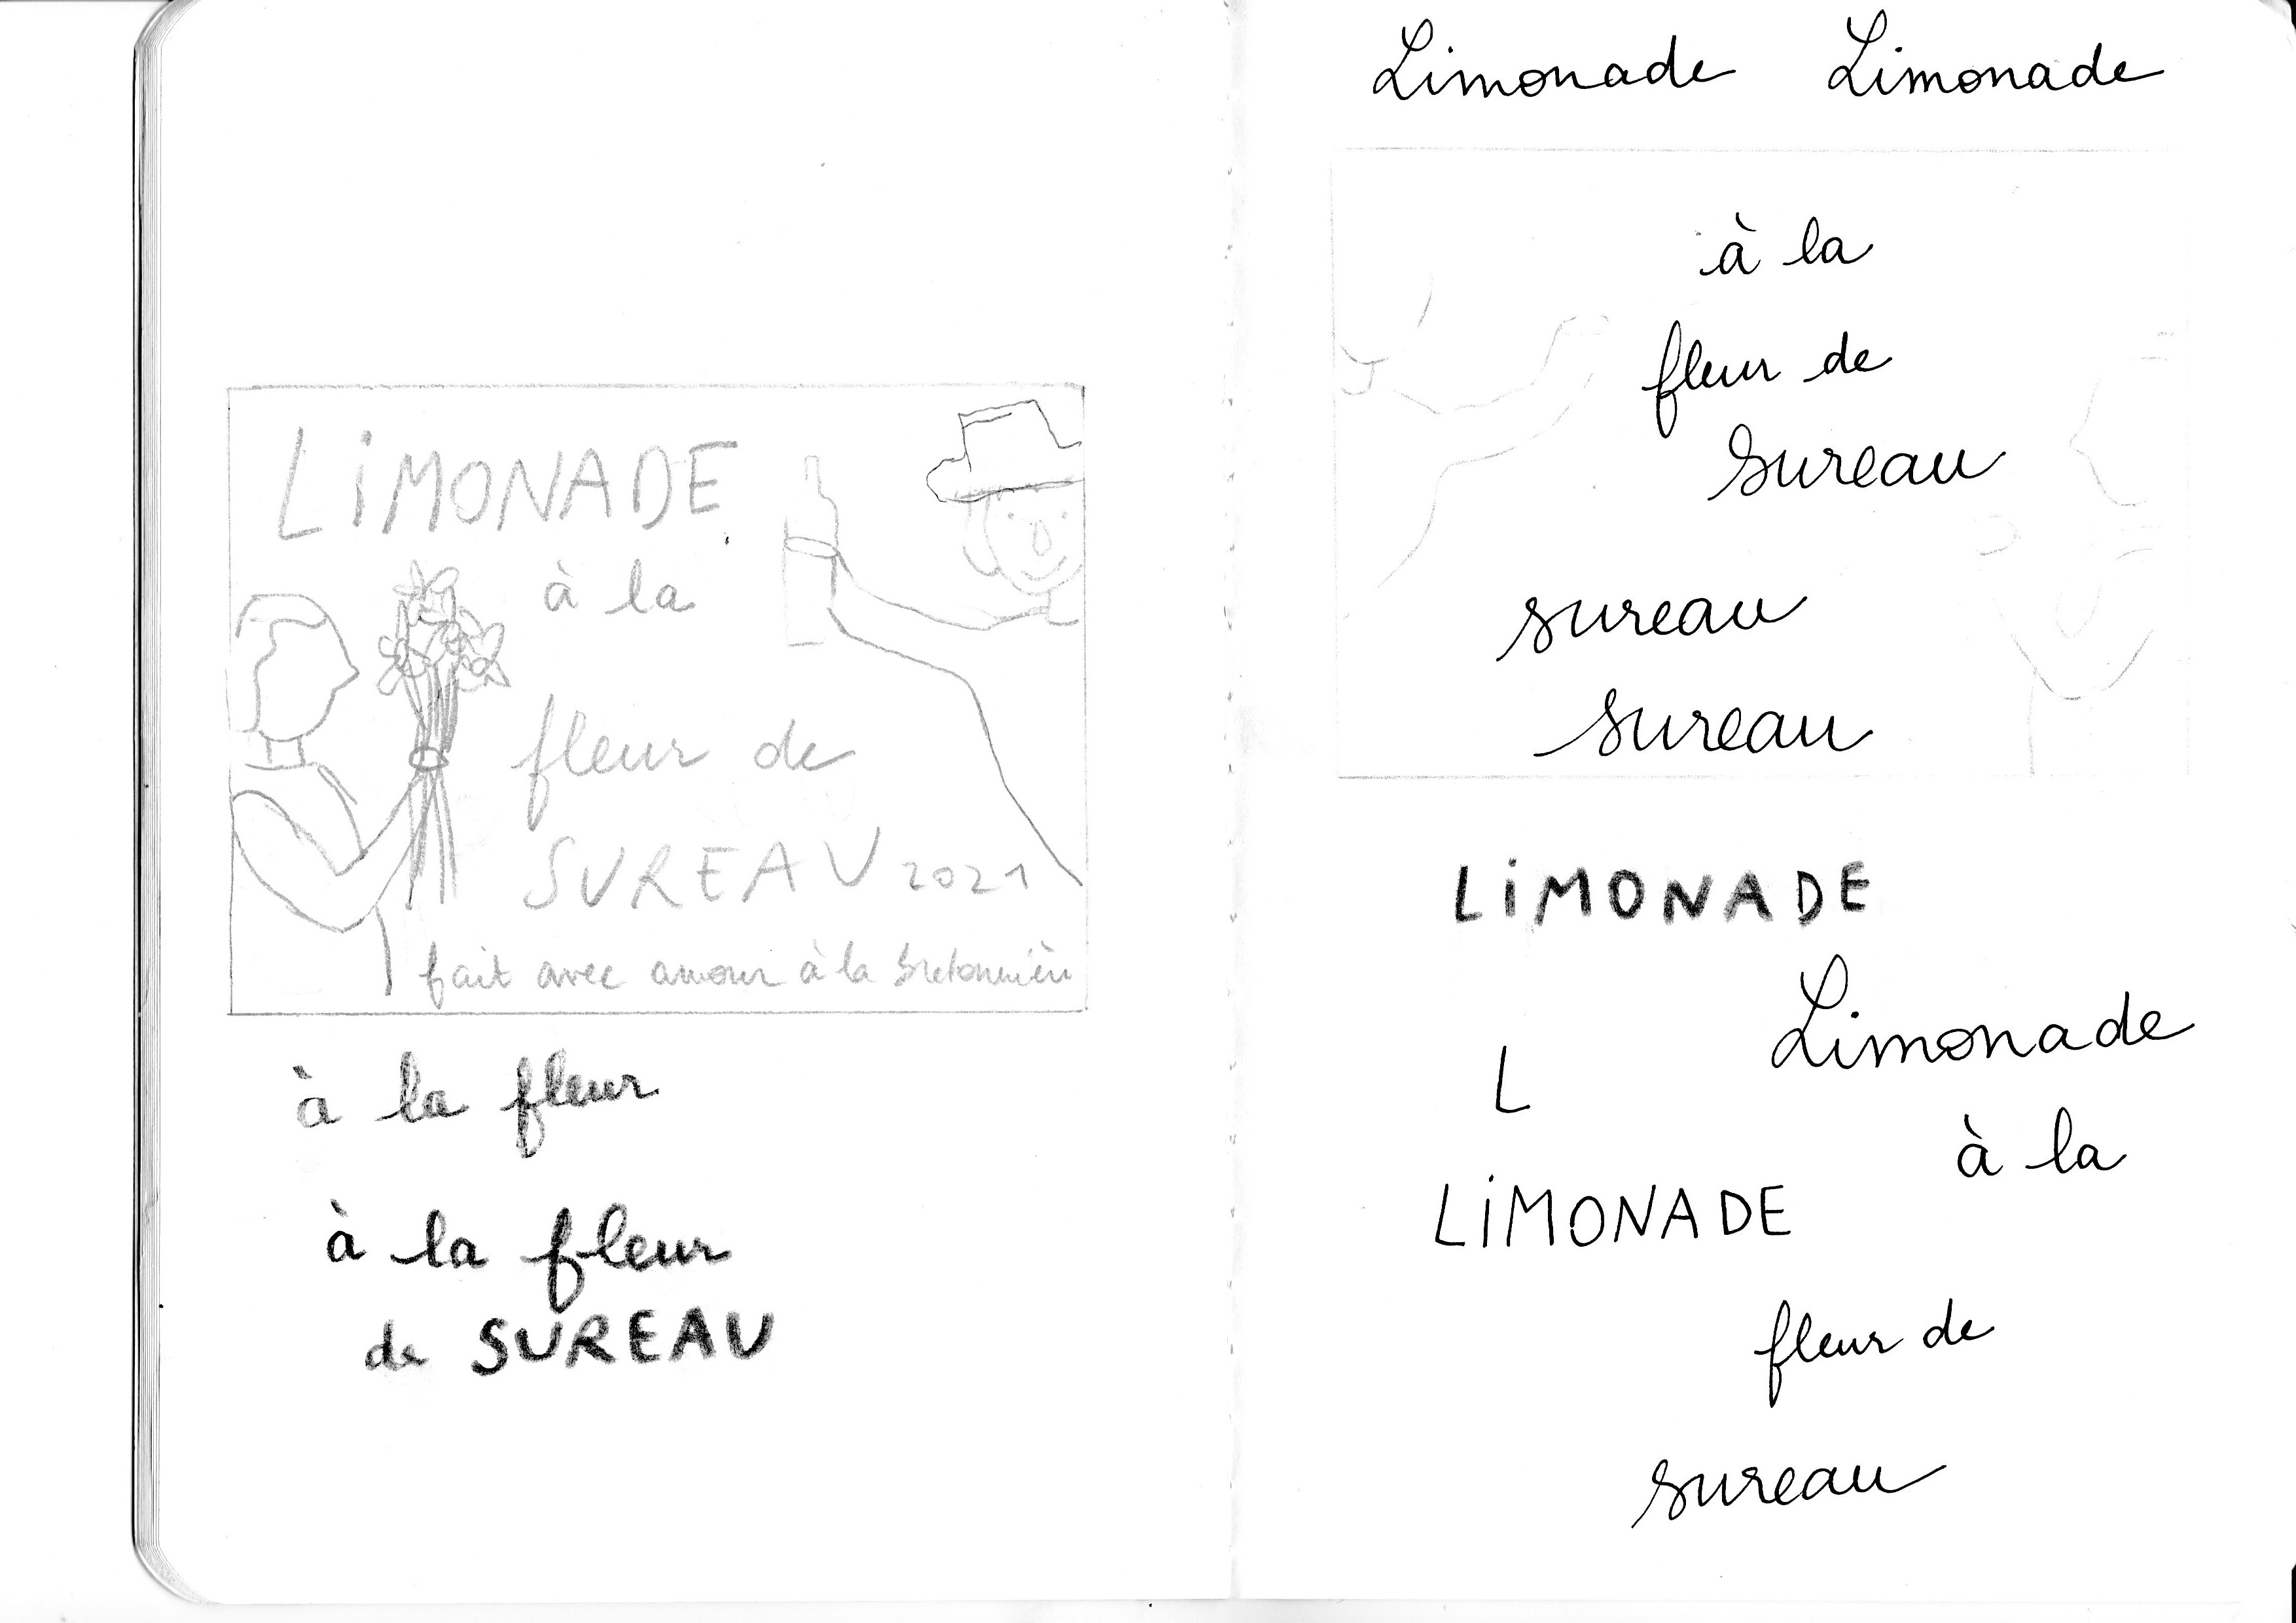 LiMONADE
à la
fleur de
SUREAU 2021
fait avec amour à la
à la fleur
à la fleur
de SUREAU
Limonade Limonade
à la
fleur de
Sureau
sureau
sureau
LiMONADE
Limonade
L
à la
LiMONADE
fleur de
sureau